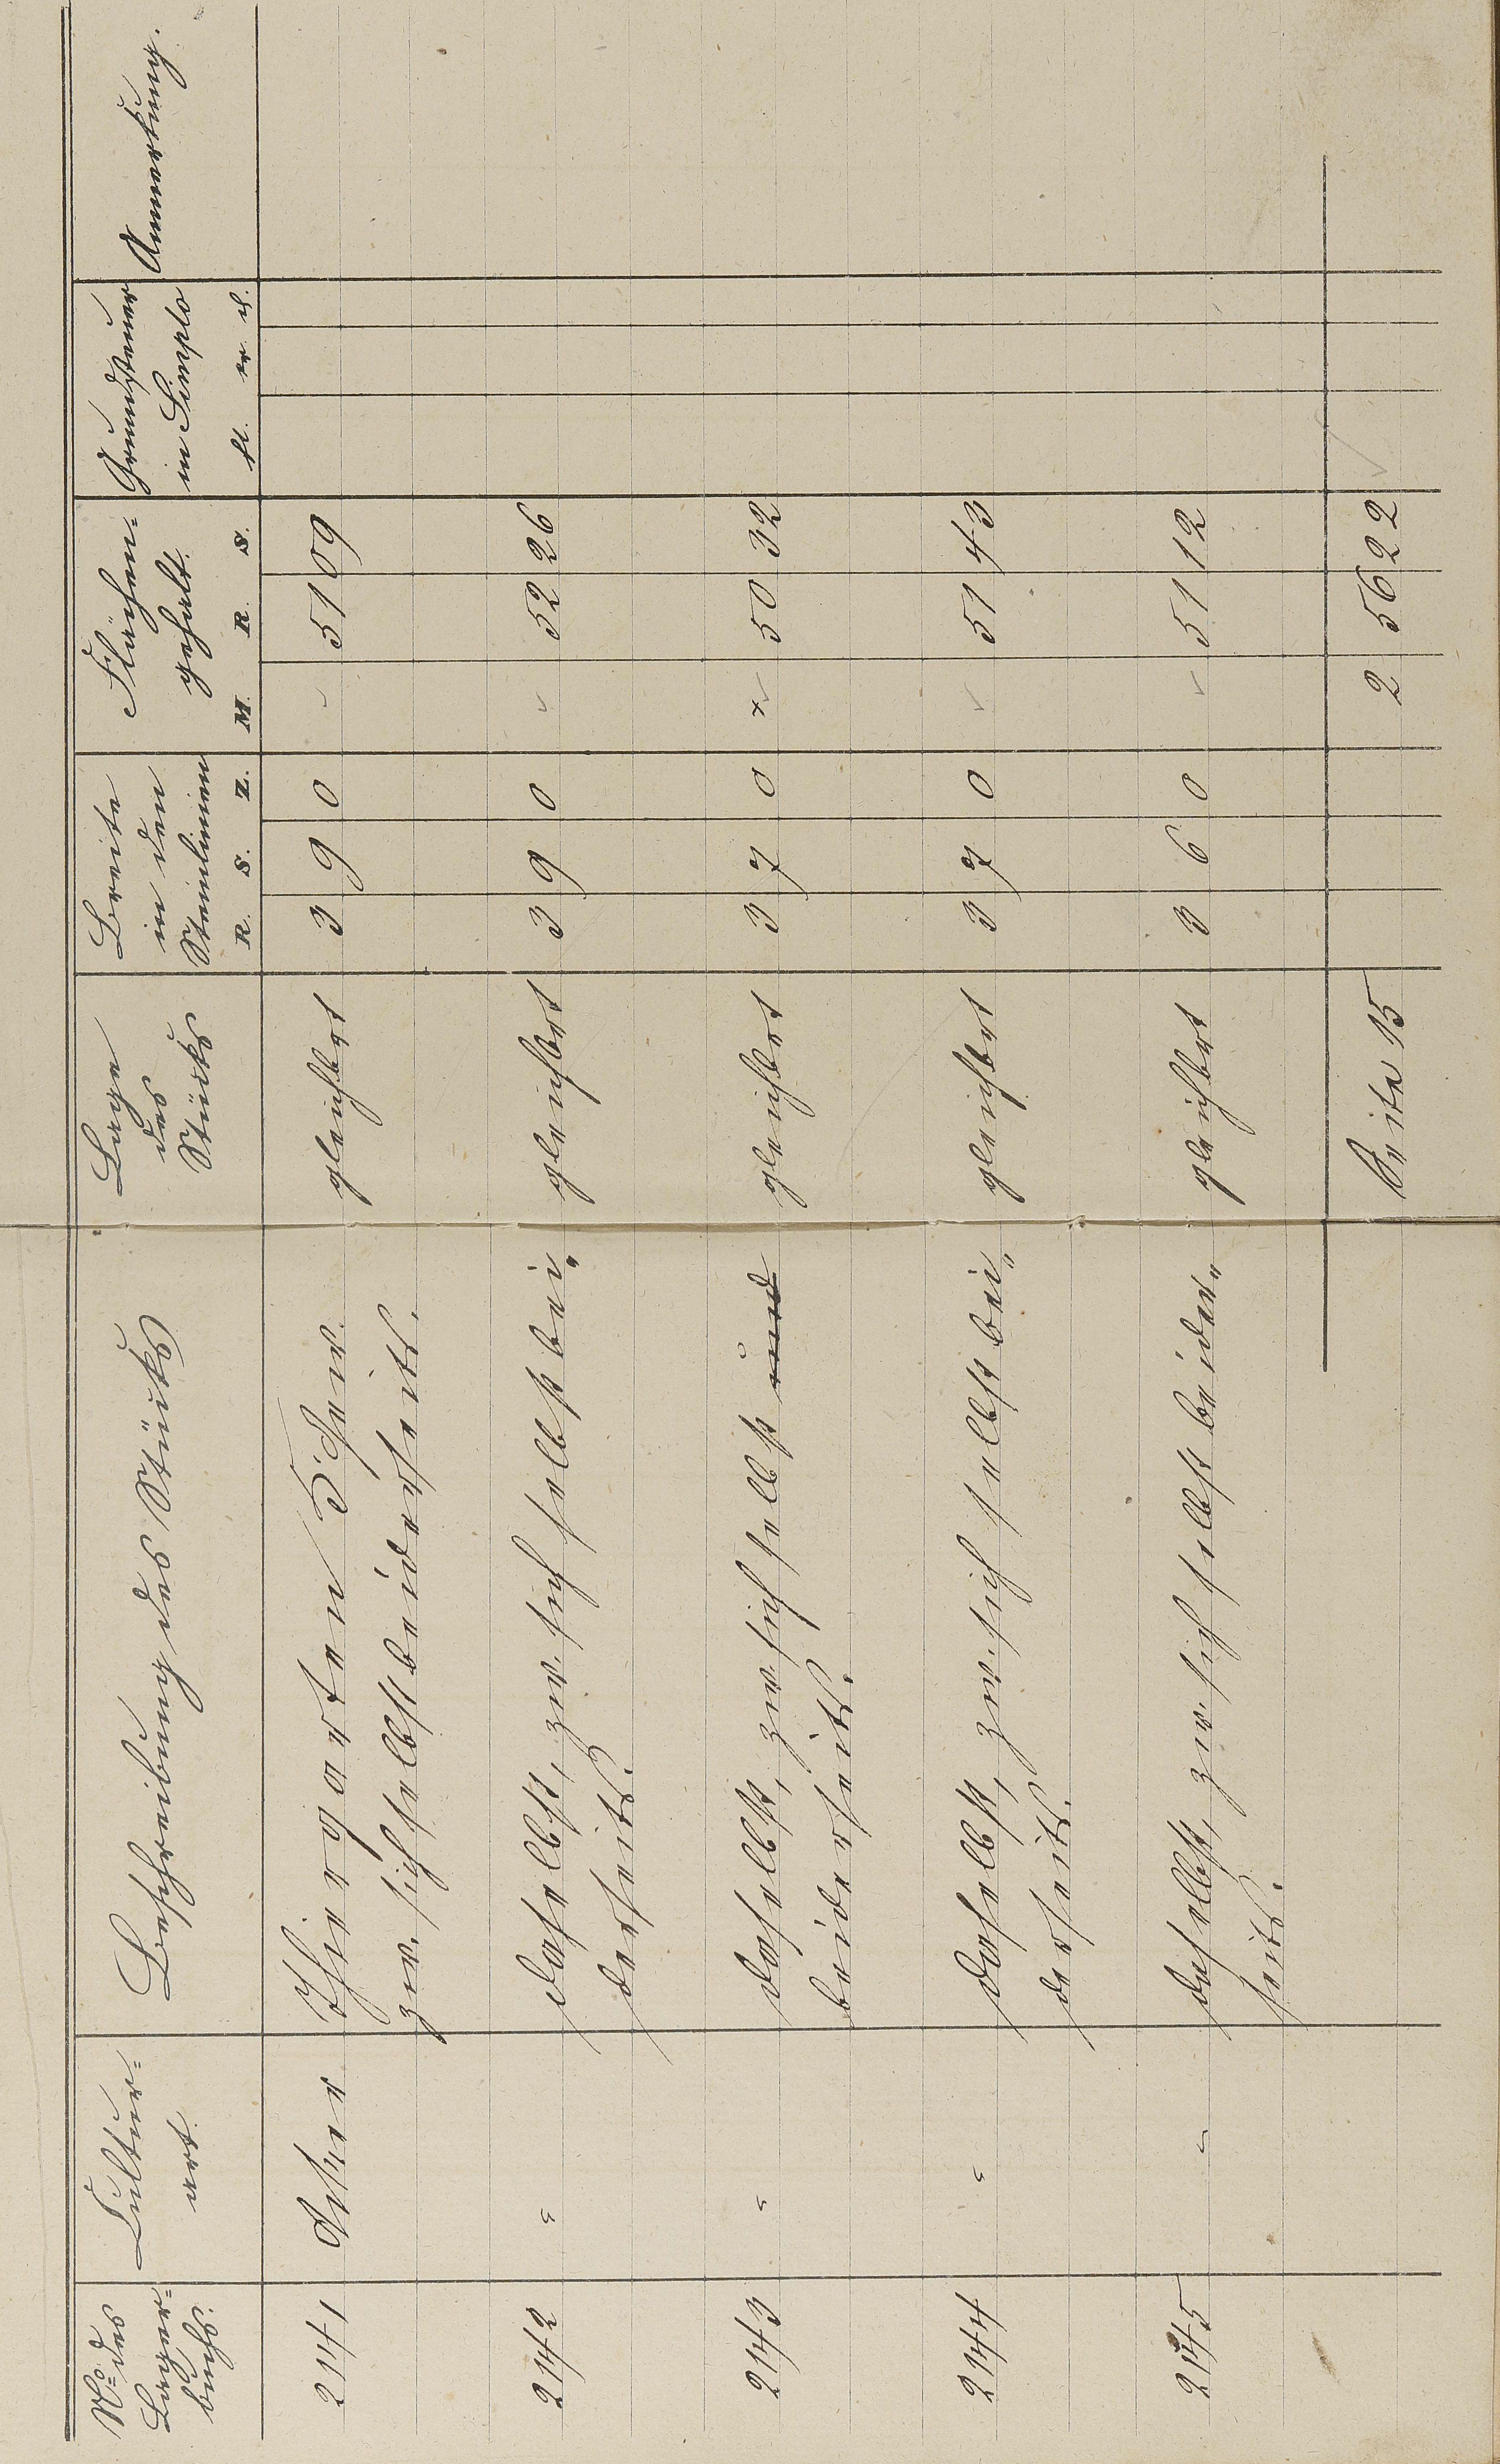 No. des Lagerbuchs.
Culturart.
Beschreibung des Stücks
Lage des Stücks
Breite in den Steinlinien
R. S. Z.
Flächengehalt.
M. R. S.
Grundsteuer in Simplo
fl. xr. h.
Anmerkung.
2141 Acker Thiergarten 5. Gew. gleichbrt 3 9 0 51 09
zw. sich selbst beiderseits.
2142 " daselbst, zw. sich selbst bei„ gleichbrt 3 9 0 52 26
derseits.
2143 " daselbst, zw. sich selbst und gleichbrt 3 7 0 50 32
beiderseits.
2144 " daselbst, zw. sich selbst bei„ gleichbrt 3 7 0 51 43
derseits.
2145 " daselbst, zw. sich selbst beider„ gleichbrt 3 6 0 51 12
seits.
Seite 15 2 56 22